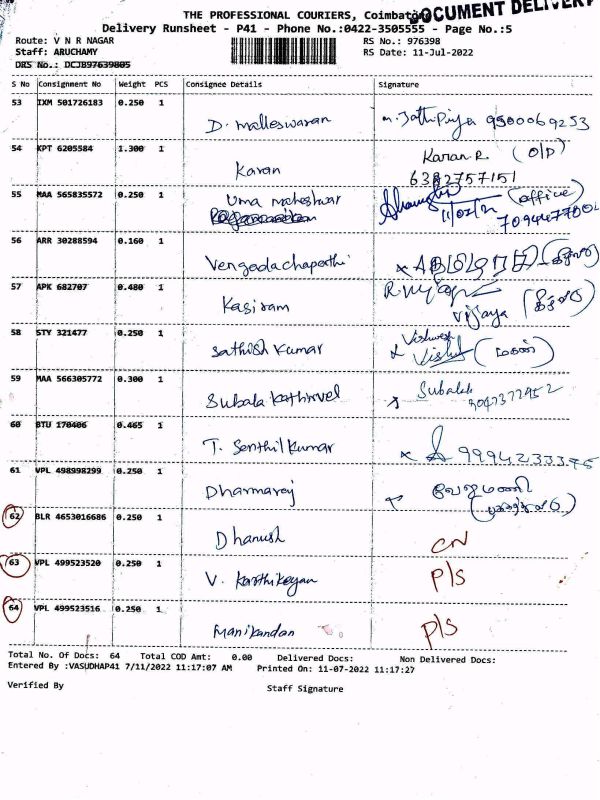 THE PROFESSIONAL COURIERS, Coimbatore
DOCUMENT DELIVERY
Delivery Runsheet - P41 - Phone No.:0422-3505555 - Page No.:5
Route: V N R NAGAR RS No.: 976398
Staff: ARUCHAMY RS Date: 11-Jul-2022
DRS No.: DCJ897639805
S No Consignment No Weight PCS Consignee Details Signature
53 IXM 501726183 0.250 1
D. malleswaran
54 KPT 6205584 1.300 1 Karan R. (O/P)
Karan 6382757151
55 MAA 565835572 0.250 1 Uma maheshwar (office)
56 ARR 30288594 0.160 1
Vengadachapathi
57 APK 682707 0.480 1
Kasiram Vijaya
58 STY 321477 0.250 1
Sathish Kumar (மகன்)
59 MAA 566305772 0.300 1
Subala Kathirvel
60 BTU 170406 0.465 1
T. Senthil Kumar
61 VPL 498998299 0.250 1
Dharmaraj
62 BLR 4653016686 0.250 1
Dhanush CN
63 VPL 499523520 0.250 1
V. Karthikeyan P/S
64 VPL 499523516 0.250 1
Manikandan P/S
Total No. Of Docs: 64 Total COD Amt: 0.00 Delivered Docs: Non Delivered Docs:
Entered By :VASUDHAP41 7/11/2022 11:17:07 AM Printed On: 11-07-2022 11:17:27
Verified By Staff Signature